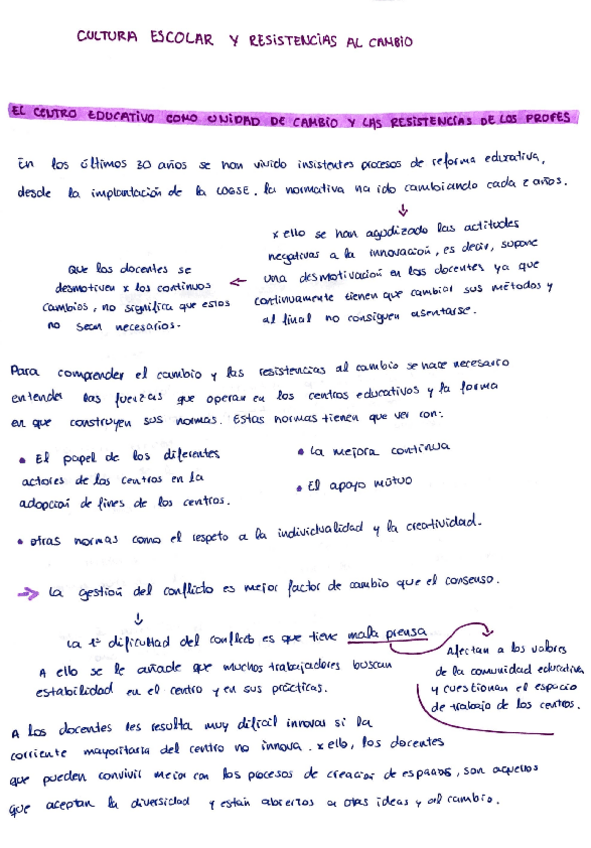 CULTURA ESCOLAR Y RESISTENCIAS AL CAMBIO
EL CENTRO EDUCATIVO COMO UNIDAD DE CAMBIO Y LAS RESISTENCIAS DE LOS PROFES
En los últimos 30 años se han vivido insistentes procesos de reforma educativa,
desde la implantación de la LOGSE. la normativa ha ido cambiando cada 2 años.
↓
x ello se han agudizado las actitudes
negativas a la innovación, es decir, supone
una desmotivación en los docentes ya que
continuamente tienen que cambiar sus métodos y
al final no consiguen asentarse.
←
Que los docentes se
desmotiven x los continuos
cambios, no significa que estos
no sean necesarios.
Para comprender el cambio y las resistencias al cambio se hace necesario
entender las fuerzas que operan en los centros educativos y la forma
en que construyen sus normas. Estas normas tienen que ver con:
• El papel de los diferentes
actores de los centros en la
adopción de fines de los centros.
• La mejora continua
• El apoyo mutuo
• otras normas como el respeto a la individualidad y la creatividad.
→ La gestión del conflicto es mejor factor de cambio que el consenso.
↓
La 1ª dificultad del conflicto es que tiene mala prensa
A ello se le añade que muchos trabajadores buscan
estabilidad en el centro y en sus prácticas.
Afectan a los valores
de la comunidad educativa
y cuestionan el espacio
de trabajo de los centros.
A los docentes les resulta muy difícil innovar si la
corriente mayoritaria del centro no innova. x ello, los docentes
que pueden convivir mejor con los procesos de creación de espacios, son aquellos
que aceptan la diversidad y están abiertos a otras ideas y al cambio.